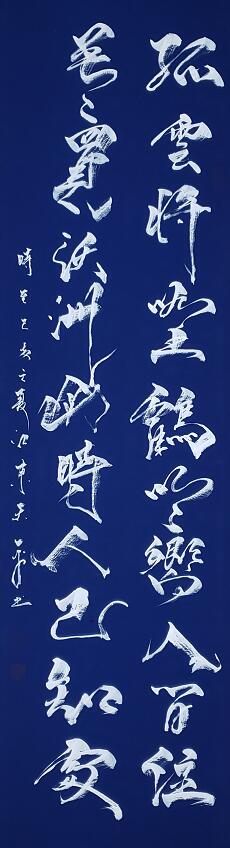 孤雲將野鶴豈嚮人間住
莫買沃洲山時人已知處
時在己亥之夏江東